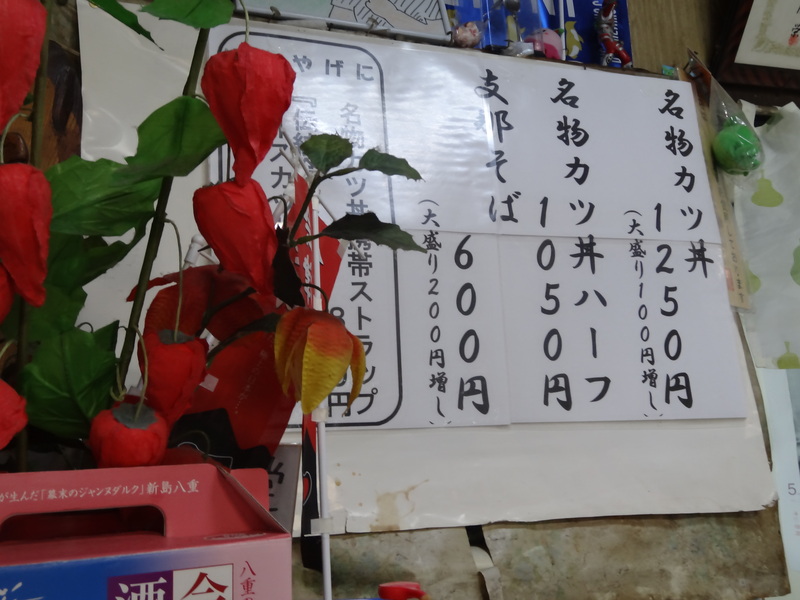 名物カツ丼
1250円
(大盛り100円増し)
名物カツ丼ハーフ
1050円
支那そば
600円
(大盛り200円増し)
やげに
名物カツ丼携帯ストラップ
が生んだ「幕末のジャンヌダルク」新島八重
八重
酒